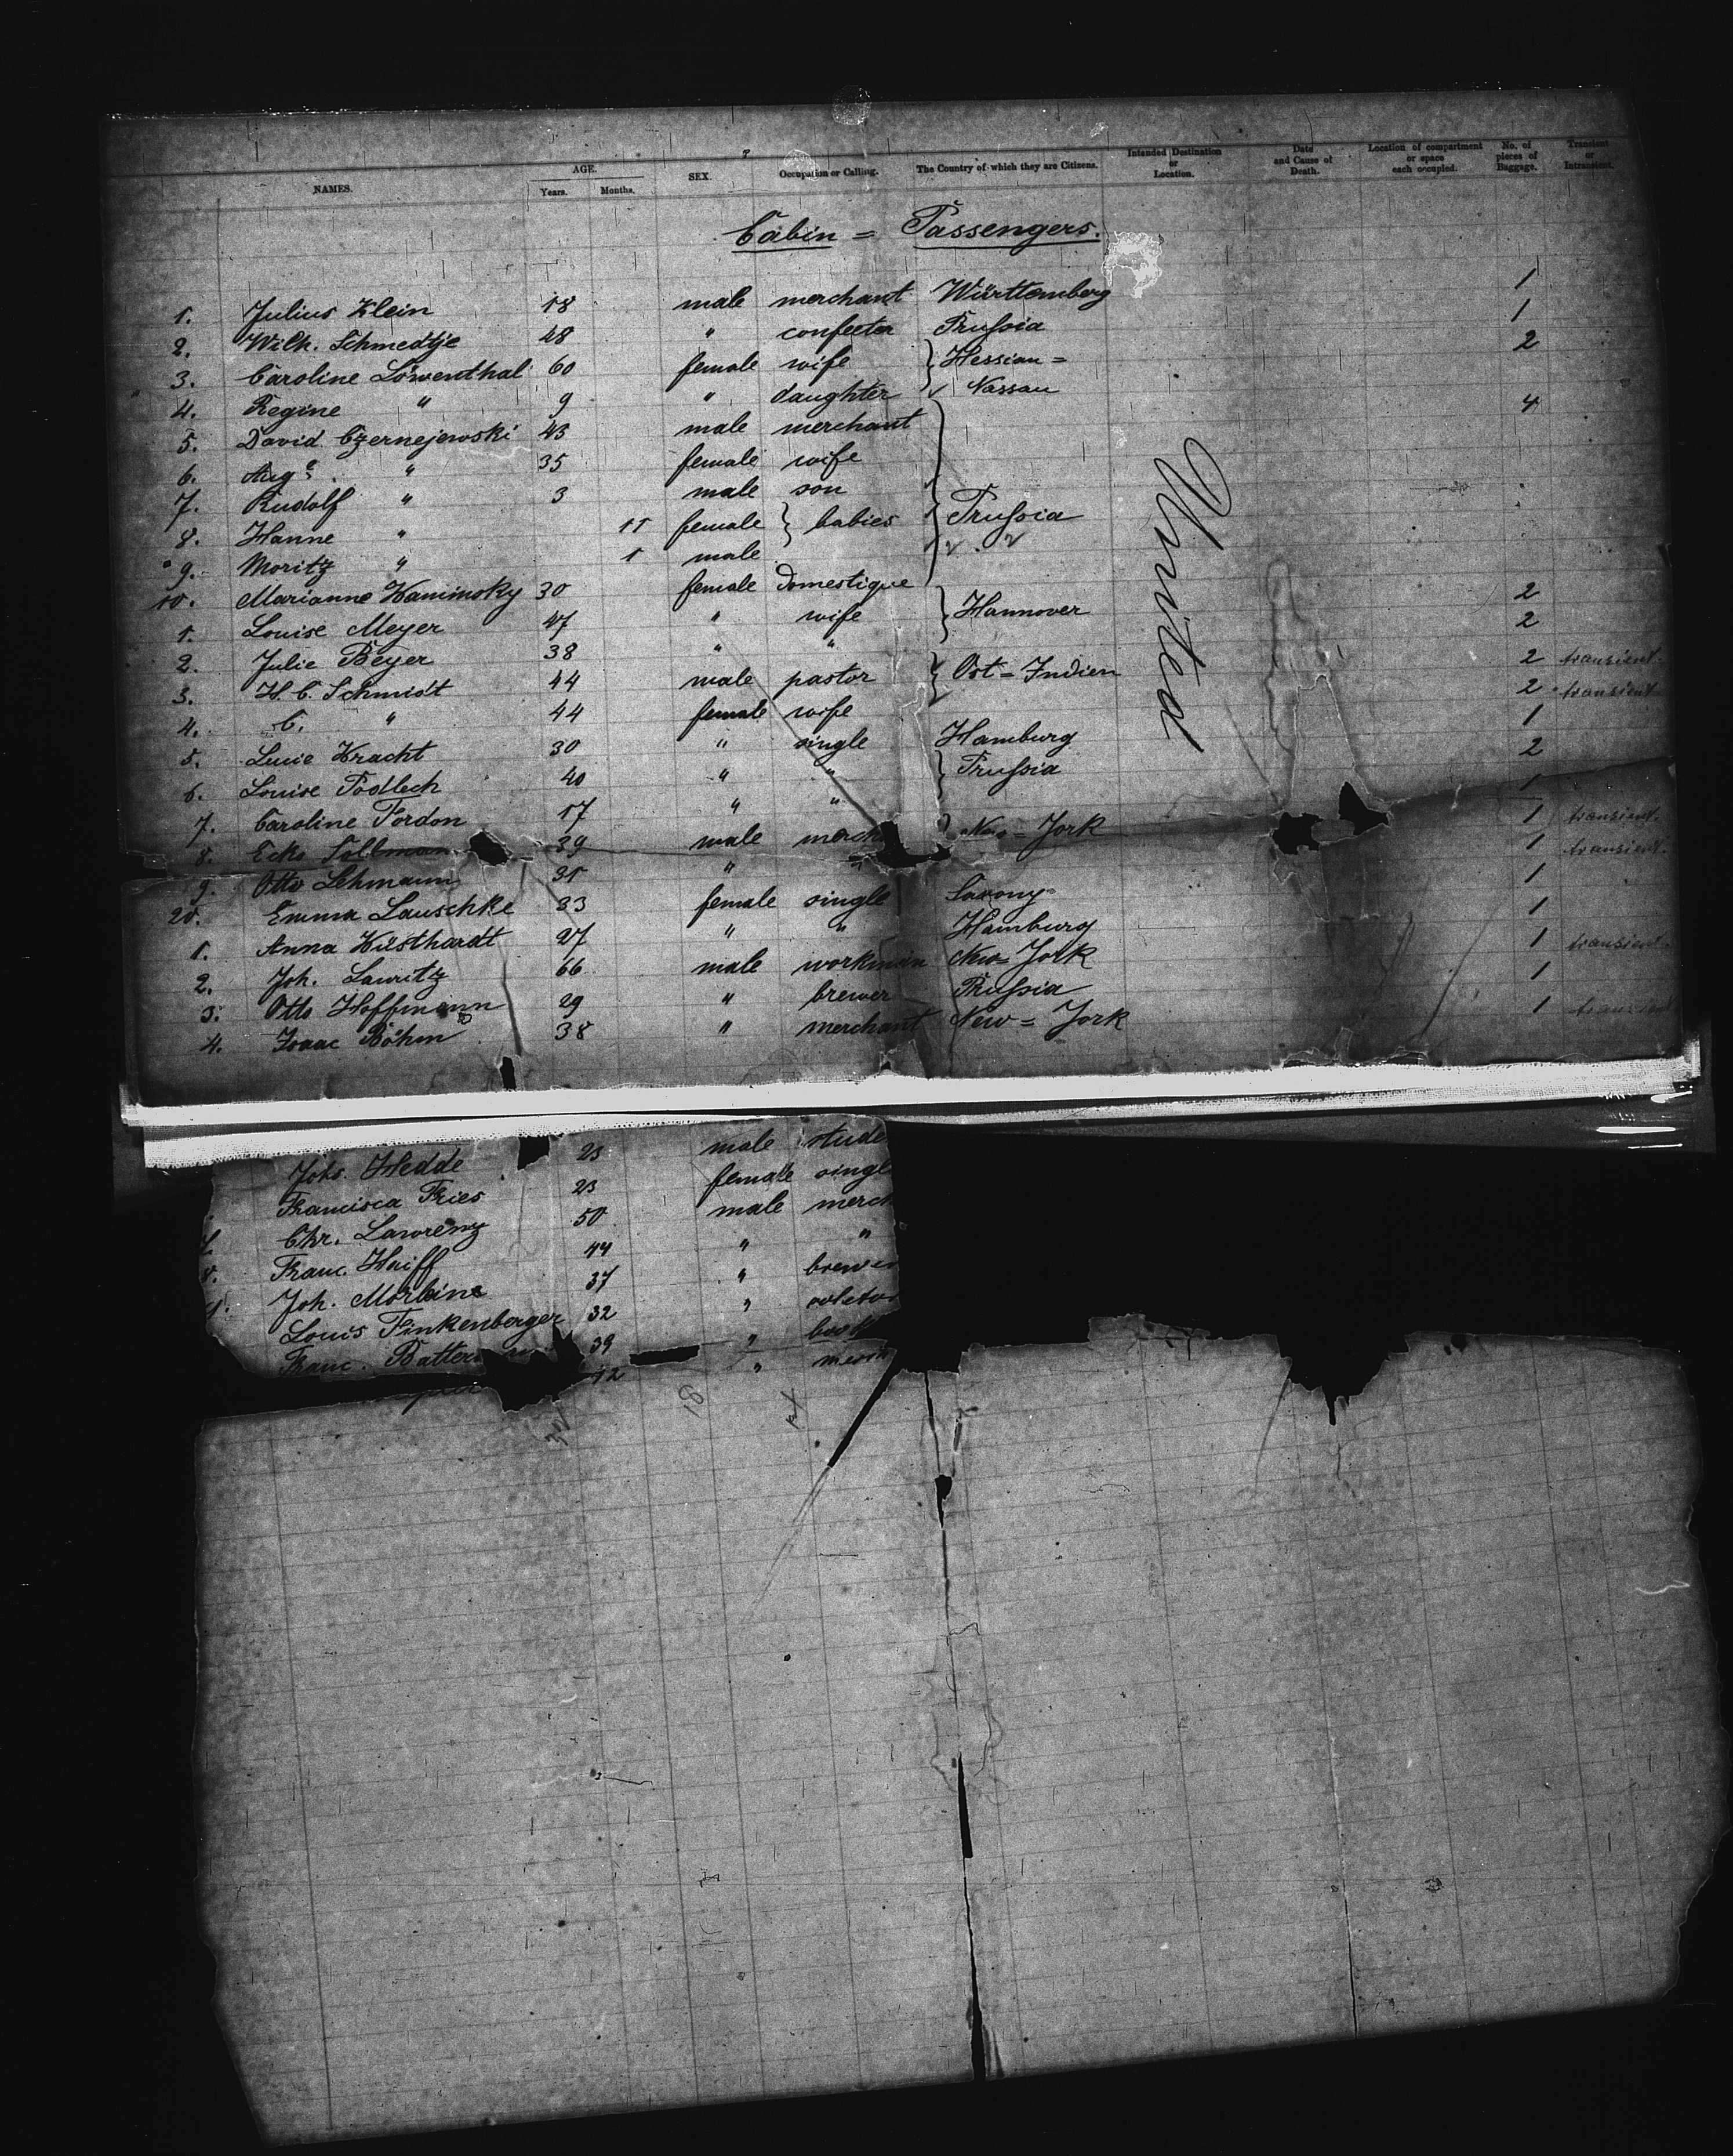 NAMES. AGE. Years. Months. SEX. Occupation or Calling. The Country of which they are Citizens. Intended Destination or Location. Date and Cause of Death. Location of compartment or space each occupied. No. of pieces of Baggage. Transient or Intransient.
Cabin = Passengers.
1. Julius Klein 18 male merchant Württemberg 1
2. Wilh. Schmedtje 48 " confecter Prussia 1
3. Caroline Löwenthal 60 female wife Hessian = 2
4. Regine " 9 " daughter Nassau
5. David Czernejewski 43 male merchant 4
6. Auge. " 35 female wife
7. Rudolf " 3 male son
8. Hanne " 11 female babies Prussia
9. Moritz " 1 male
10. Marianne Kaminsky 30 female domestique
1. Louise Meyer 47 " wife Hannover 2
2. Julie Beyer 38 " " 2
3. H. C. Schmidt 44 male pastor Ost = Indien 2 transient
4. C. " 44 female wife 2 transient
5. Lucie Kracht 30 " single Hamburg 1
6. Louise Podlech 40 " " Prussia 2
7. Caroline Fordon 17 " " 1
8. 39 male merch New = York 1 transient.
9. Otto Lehmann 31 " " 1 transient.
20. Emma Lauschke 33 female single Saxony 1
1. Anna Küsthardt 27 " " Hamburg 1
2. Joh. Lauritz 66 male workman New = York 1 transient
3. Otto Hoffmann 29 " brewer Prussia 1
4. Isaac Böhm 38 " merchant New = York 1 transient
United
Johs. Hedde 23 male stude
Francisca Fries 23 female singl
Chr. Lawrenz 50 male merch
Franc. Haiff 44 " "
Joh. 37 " brewer
Louis Finkenberger 32 "
Franc. 39 " book
12 "
34 18 14